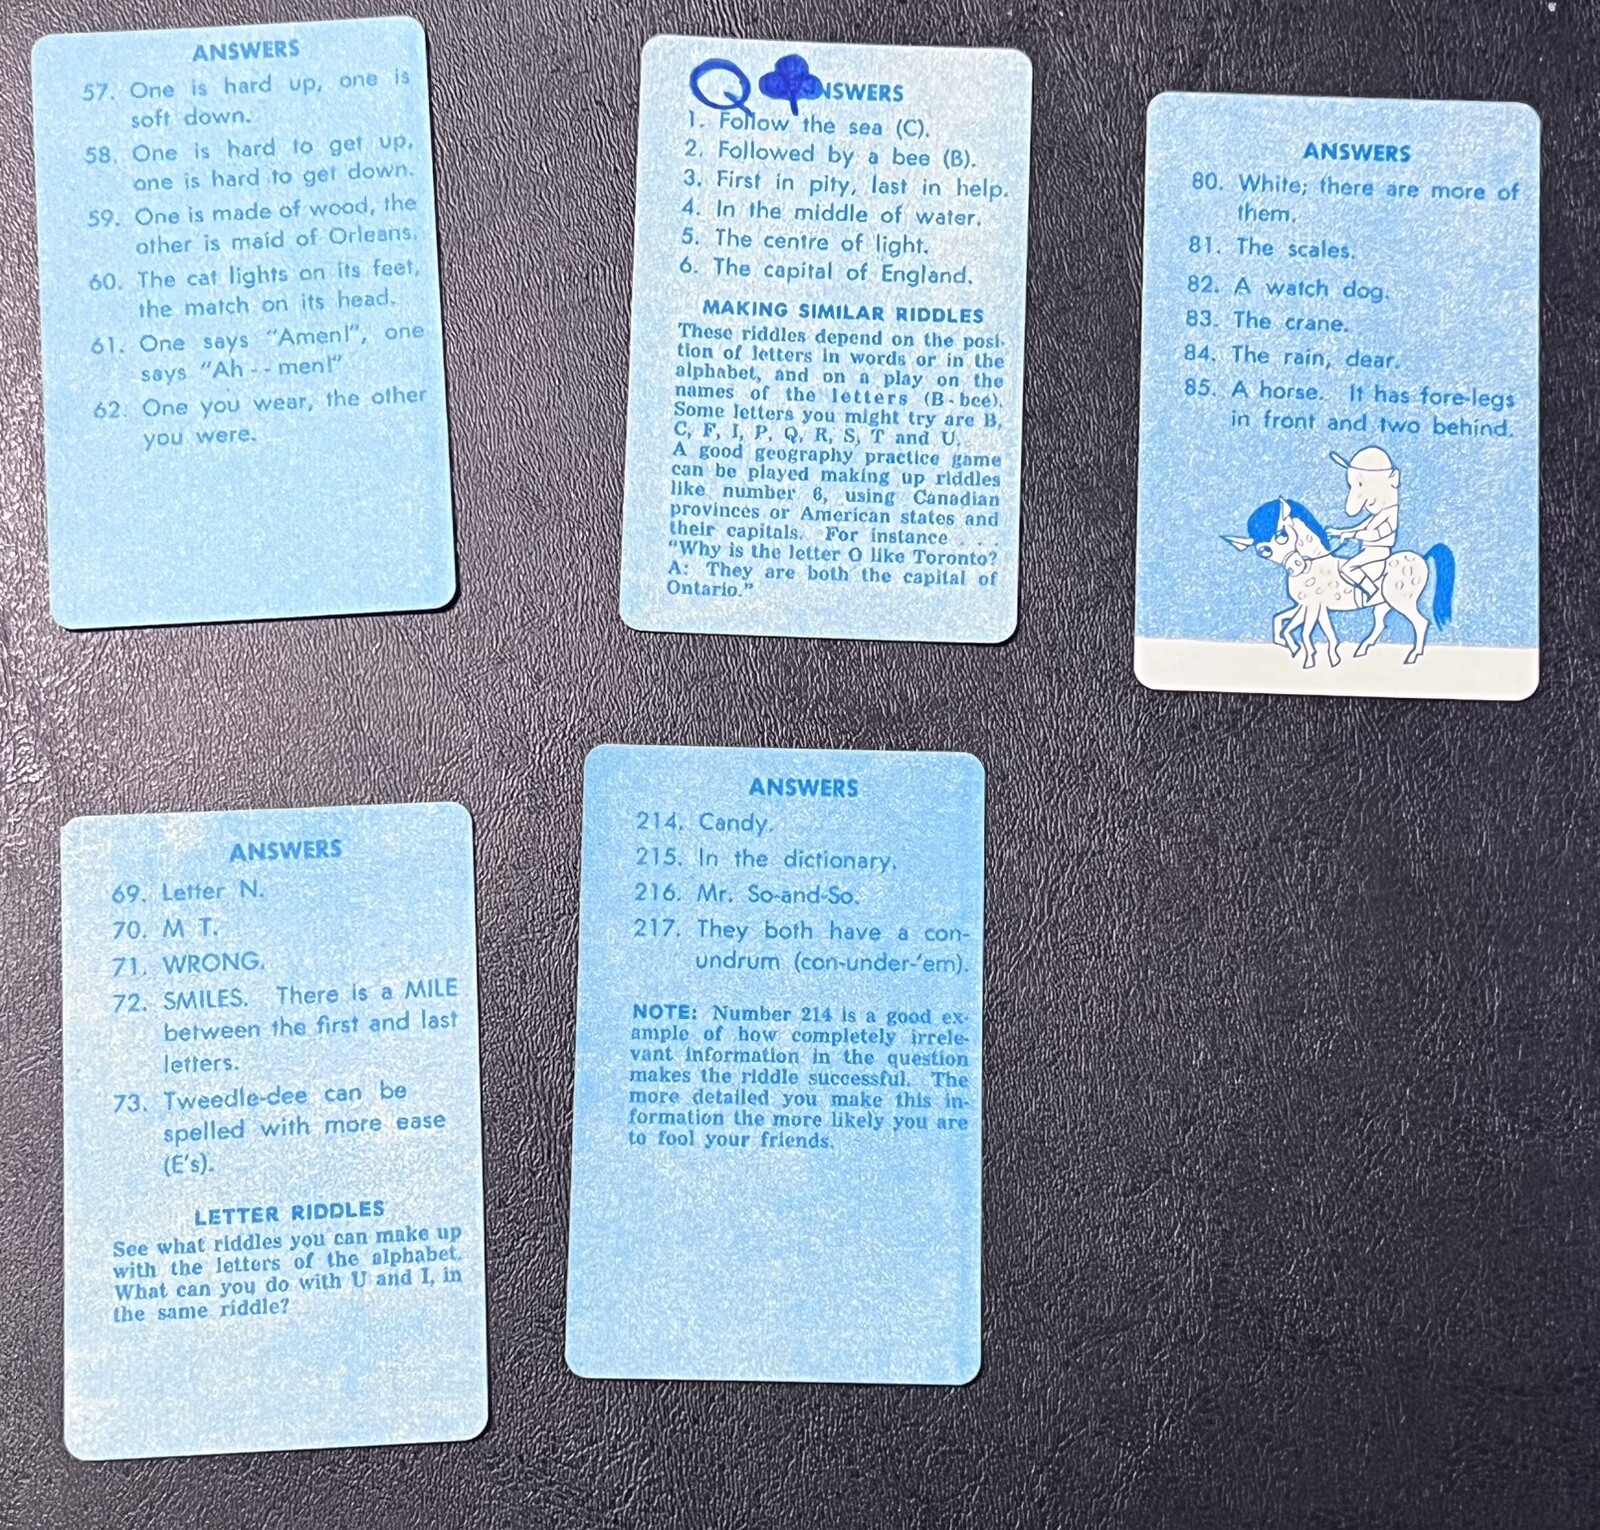 ANSWERS
57. One is hard up, one is
soft down.
58. One is hard to get up,
one is hard to get down.
59. One is made of wood, the
other is maid of Orleans.
60. The cat lights on its feet,
the match on its head.
61. One says "Amen!", one
says "Ah - - men!"
62. One you wear, the other
you were.
Q ♣NSWERS
1. Follow the sea (C).
2. Followed by a bee (B).
3. First in pity, last in help.
4. In the middle of water.
5. The centre of light.
6. The capital of England.
MAKING SIMILAR RIDDLES
These riddles depend on the posi-
tion of letters in words or in the
alphabet, and on a play on the
names of the letters (B - bee).
Some letters you might try are B,
C, F, I, P, Q, R, S, T and U.
A good geography practice game
can be played making up riddles
like number 6, using Canadian
provinces or American states and
their capitals. For instance . . .
"Why is the letter O like Toronto?
A: They are both the capital of
Ontario."
ANSWERS
80. White; there are more of
them.
81. The scales.
82. A watch dog.
83. The crane.
84. The rain, dear.
85. A horse. It has fore-legs
in front and two behind.
ANSWERS
69. Letter N.
70. M T.
71. WRONG.
72. SMILES. There is a MILE
between the first and last
letters.
73. Tweedle-dee can be
spelled with more ease
(E's).
LETTER RIDDLES
See what riddles you can make up
with the letters of the alphabet.
What can you do with U and I, in
the same riddle?
ANSWERS
214. Candy.
215. In the dictionary.
216. Mr. So-and-So.
217. They both have a con-
undrum (con-under-'em).
NOTE: Number 214 is a good ex-
ample of how completely irrele-
vant information in the question
makes the riddle successful. The
more detailed you make this in-
formation the more likely you are
to fool your friends.